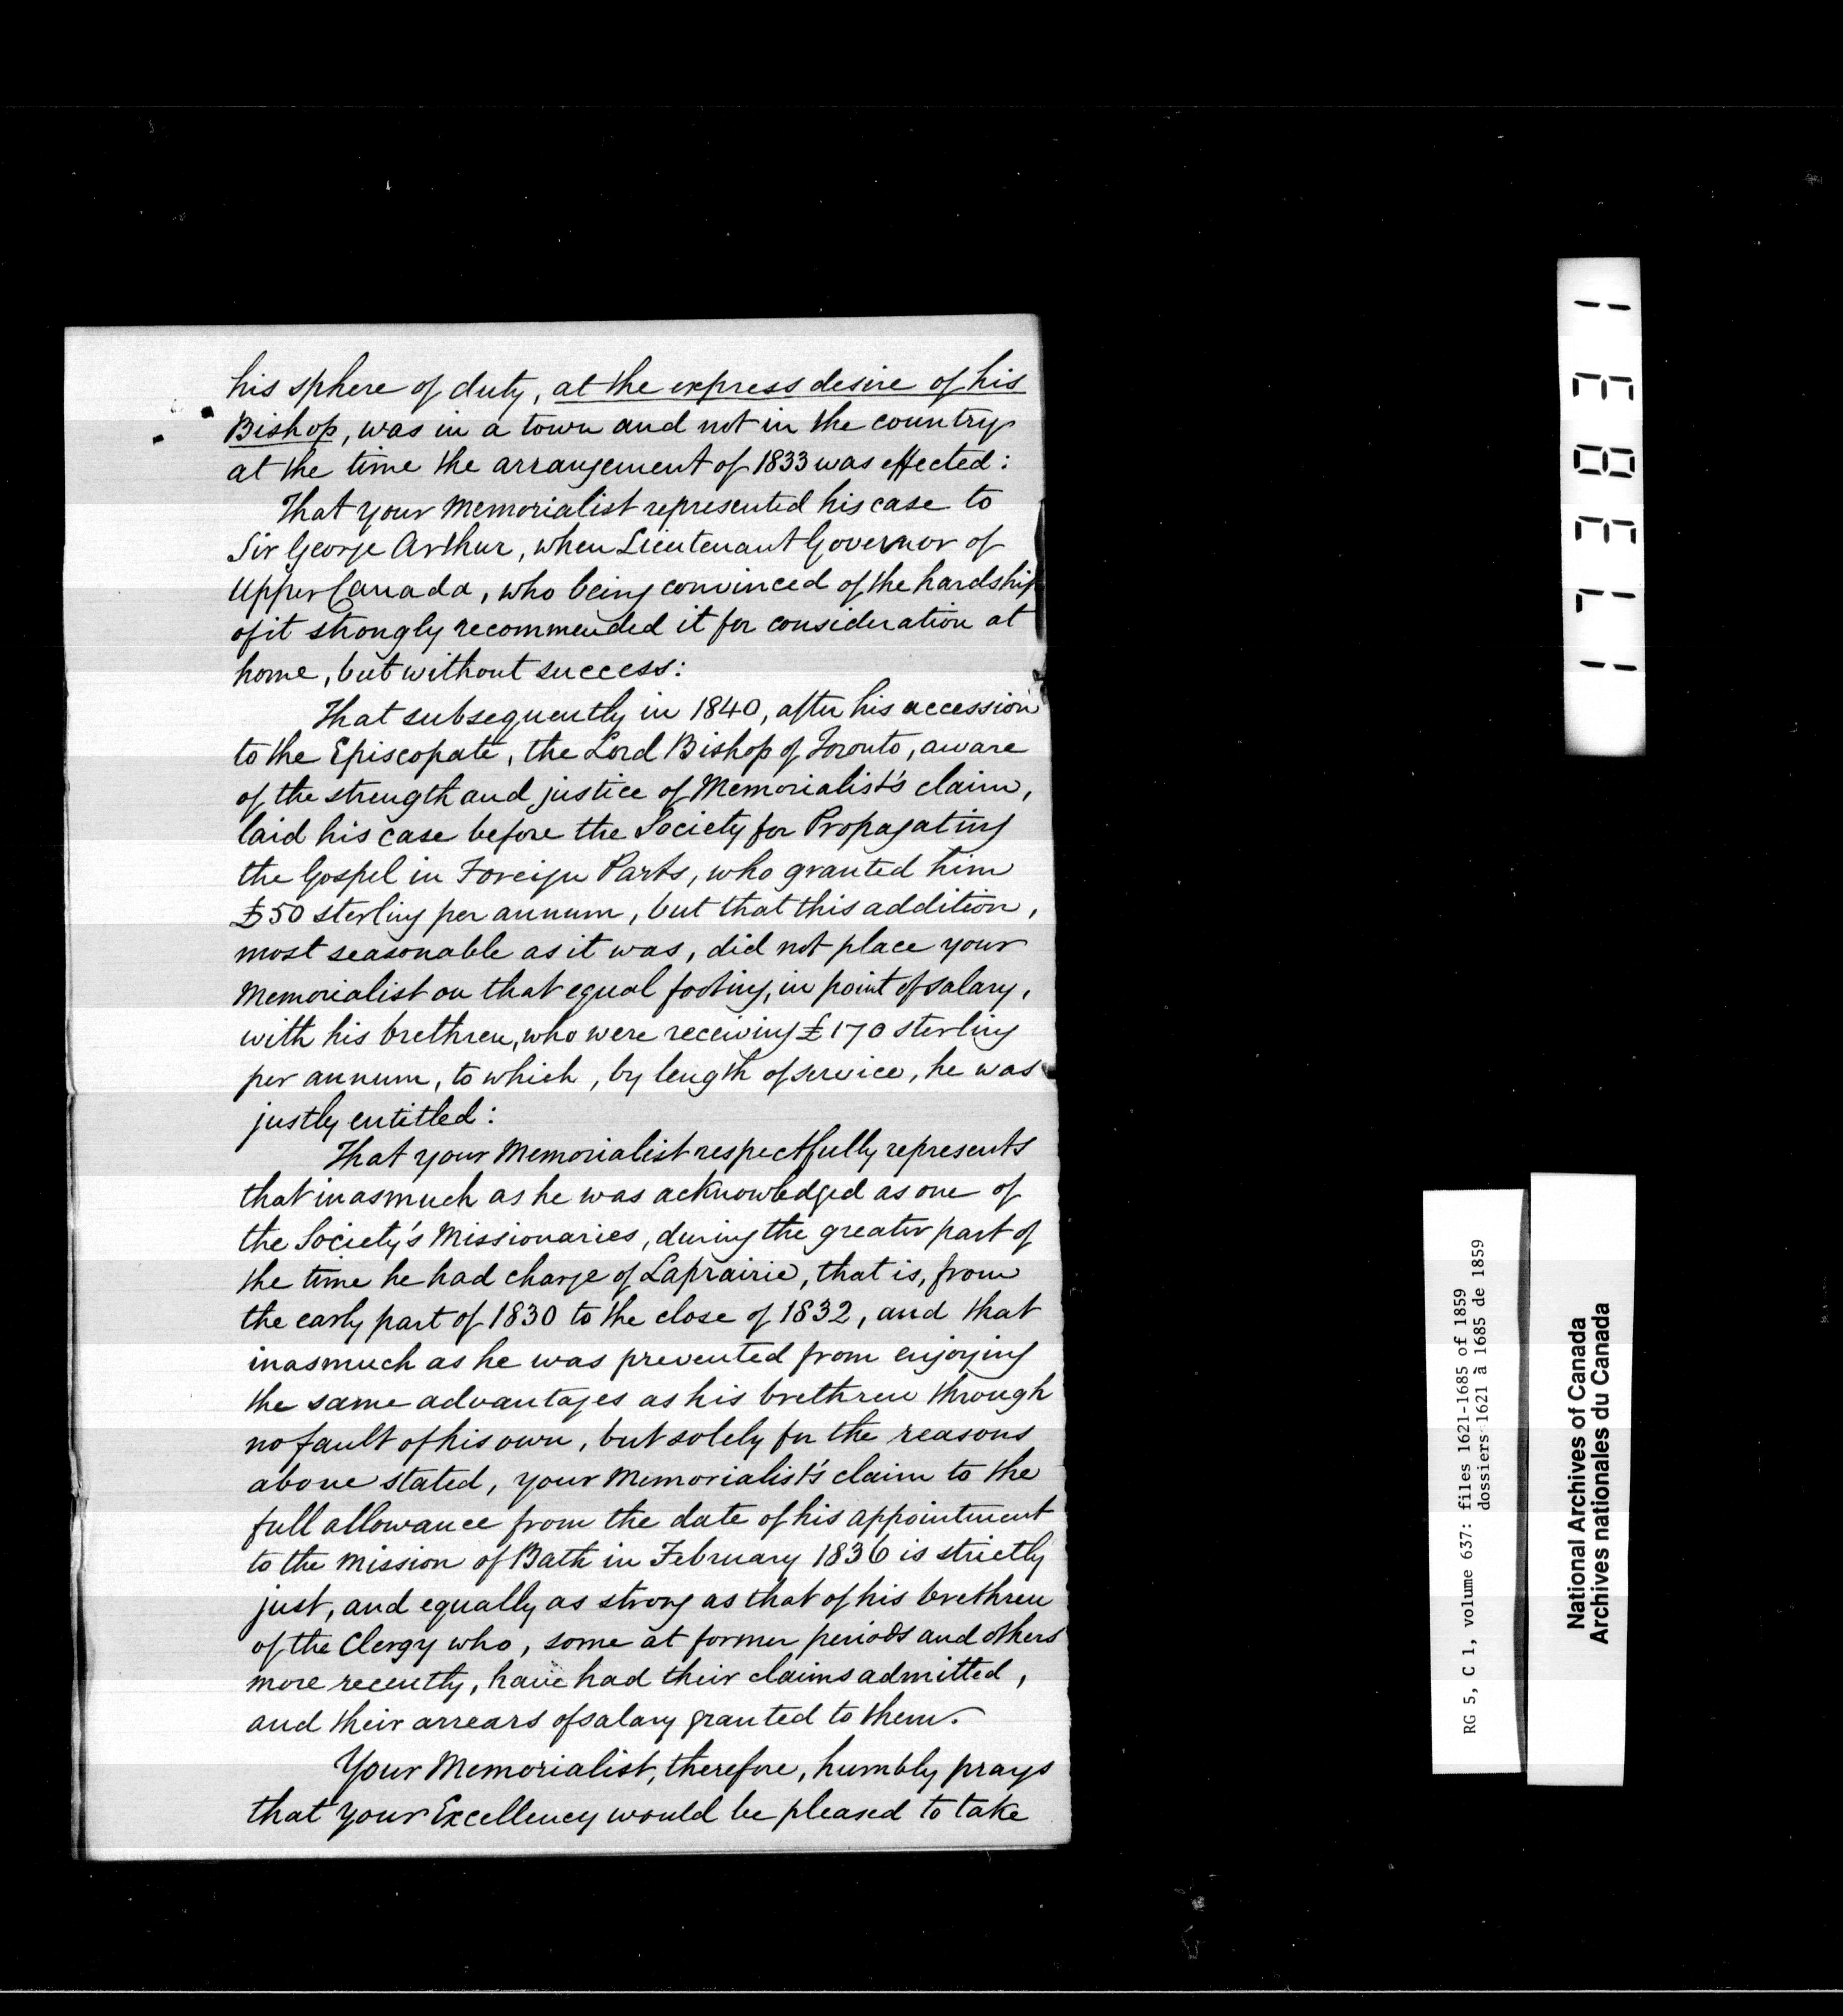 his sphere of duty, at the express desire of his
Bishop, was in a town and not in the country
at the time the arrangement of 1833 was effected:
That your Memorialist represented his case to
Sir George Arthur, when Lieutenant Governor of
Upper Canada, who being convinced of the hardship
of it strongly recommended it for consideration at
home, but without success:
That subsequently in 1840, after his accession
to the Episcopate, the Lord Bishop of Toronto, aware
of the strength and justice of Memorialist's claim,
laid his case before the Society for Propagating
the Gospel in Foreign Parts, who granted him
£50 sterling per annum, but that this addition,
most seasonable as it was, did not place your
Memorialist on that equal footing, in point of salary,
with his brethren, who were receiving £170 sterling
per annum, to which, by length of service, he was
justly entitled:
That your Memorialist respectfully represents
that inasmuch as he was acknowledged as one of
the Society's Missionaries, during the greater part of
the time he had charge of Laprairie, that is, from
the early part of 1830 to the close of 1832, and that
inasmuch as he was prevented from enjoying
the same advantages as his brethren through
no fault of his own, but solely for the reasons
above stated, your Memorialist's claim to the
full allowance from the date of his appointment
to the Mission of Bath in February 1836 is strictly
just, and equally as strong as that of his brethren
of the Clergy who, some at former periods and others
more recently, have had their claims admitted,
and their arrears of salary granted to them.
Your Memorialist, therefore, humbly prays
that your Excellency would be pleased to take
17E8E1
RG 5, C 1, volume 637: files 1621-1685 of 1859
dossiers 1621 à 1685 de 1859
National Archives of Canada
Archives nationales du Canada